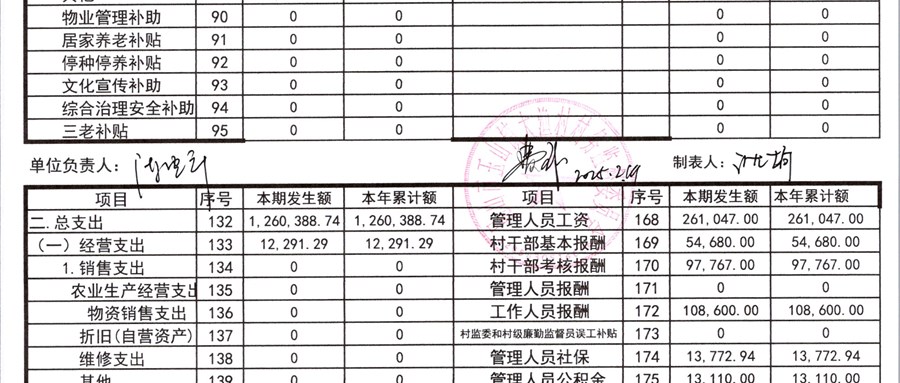 物业管理补助 90 0 0 0 0
居家养老补贴 91 0 0 0 0
停种停养补贴 92 0 0 0 0
文化宣传补助 93 0 0 0 0
综合治理安全补助 94 0 0 0 0
三老补贴 95 0 0 0 0
单位负责人： 2025.2.19 制表人：
项目 序号 本期发生额 本年累计额 项目 序号 本期发生额 本年累计额
二.总支出 132 1,260,388.74 1,260,388.74 管理人员工资 168 261,047.00 261,047.00
（一）经营支出 133 12,291.29 12,291.29 村干部基本报酬 169 54,680.00 54,680.00
1.销售支出 134 0 0 村干部考核报酬 170 97,767.00 97,767.00
农业生产经营支出 135 0 0 管理人员报酬 171 0 0
物资销售支出 136 0 0 工作人员报酬 172 108,600.00 108,600.00
折旧(自营资产) 137 0 0 村监委和村级廉勤监督员误工补贴 173 0 0
维修支出 138 0 0 管理人员社保 174 13,772.94 13,772.94
其他 139 0 0 管理人员公积金 175 13,110.00 13,110.00